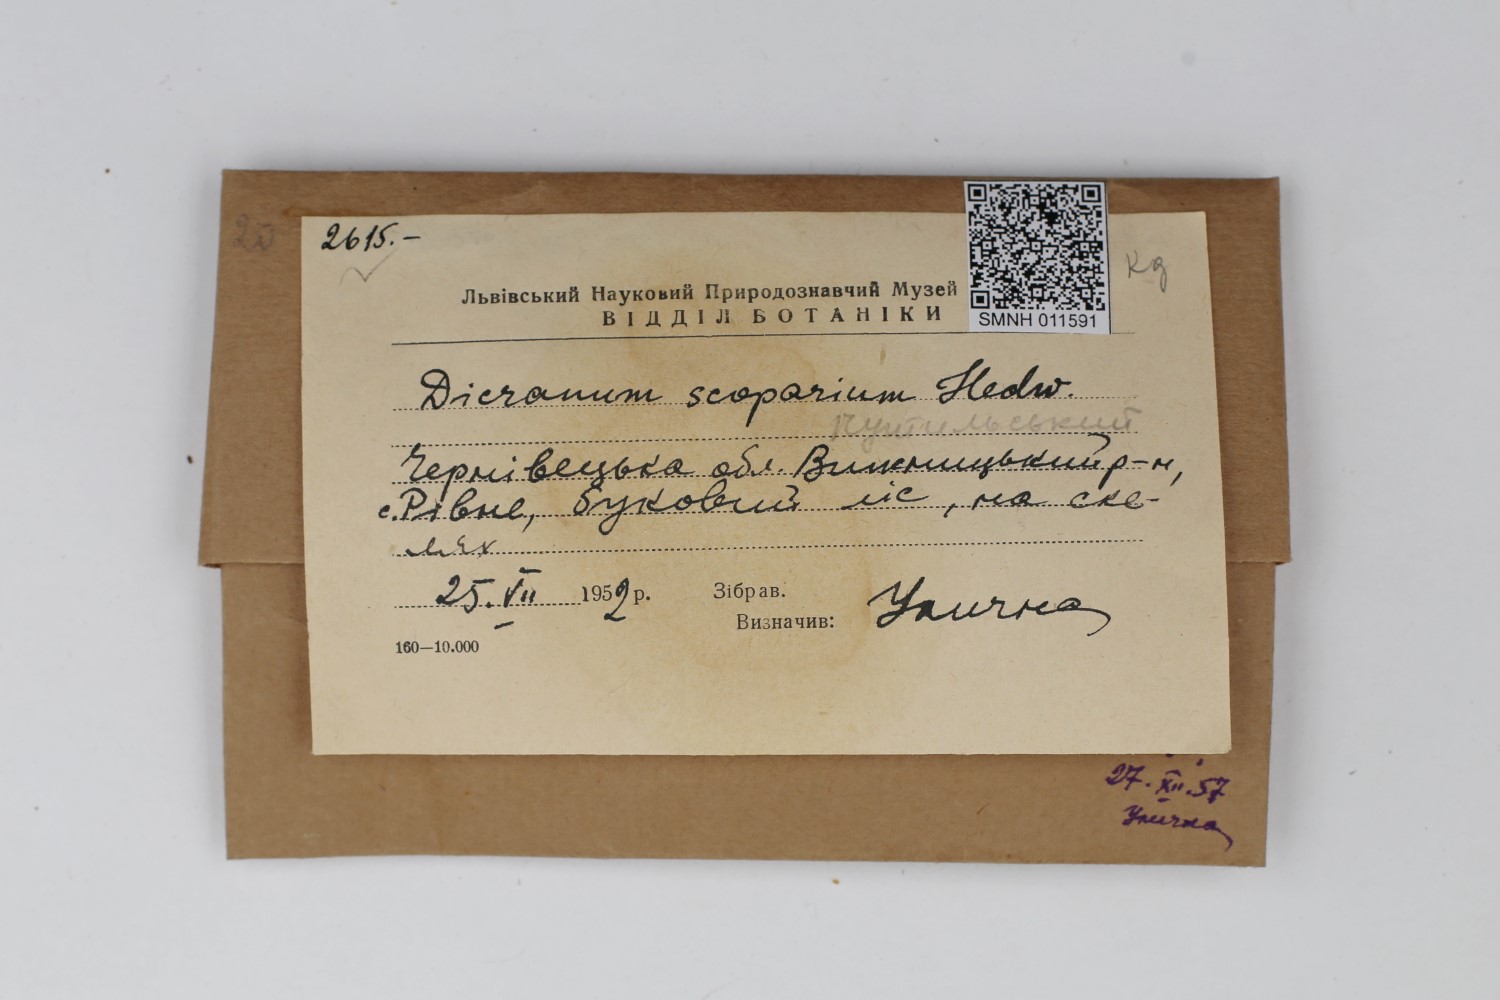 20
2615.–
Кд
Львівський Науковий Природознавчий Музей
ВІДДІЛ БОТАНІКИ
SMNH 011591
Dicranum scoparium Hedw.
Путильський
Чернівецька обл. Вижницький р-н,
с. Рівне, буковий ліс, на ске-
лях
25.VII 1952 р. Зібрав.
Визначив: Улична
160—10.000
27.XII.57
Улична